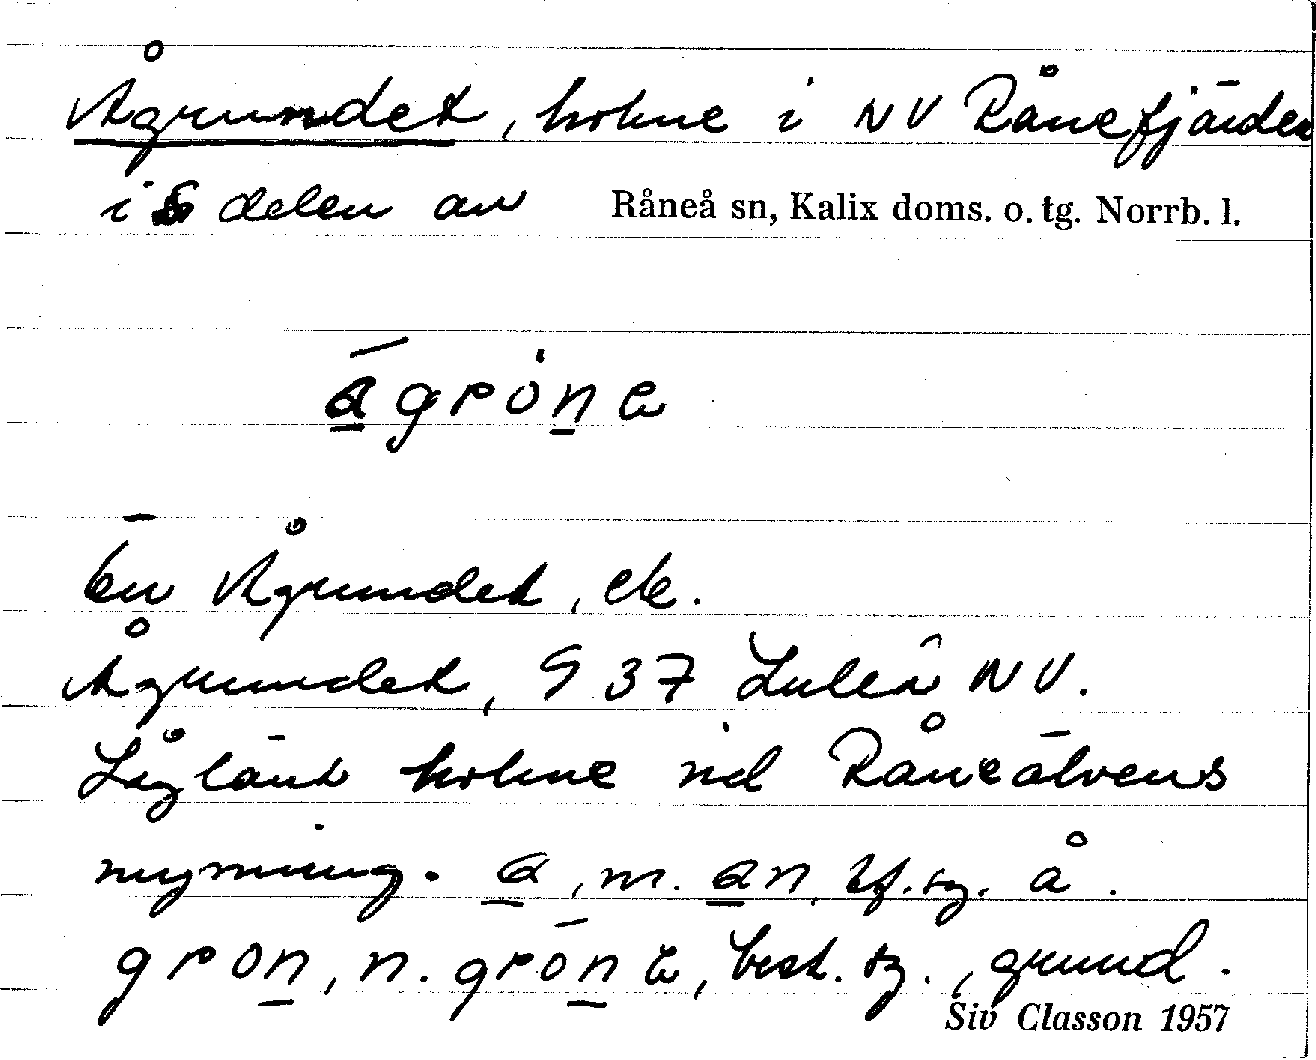 Ågrundet, holme i NV Rånefjärden
i S delen av Råneå sn, Kalix doms. o. tg. Norrb. l.
a̲grón̲e
En Ågrundet, ek.
Ågrundet, 9 37 Luleå NV.
Låglänt holme vid Råneälvens
mynning. a̲, m. a̲n, bf. sg. å.
gron̲, n. grōn̲e, best. sg., grund.
Siv Classon 1957